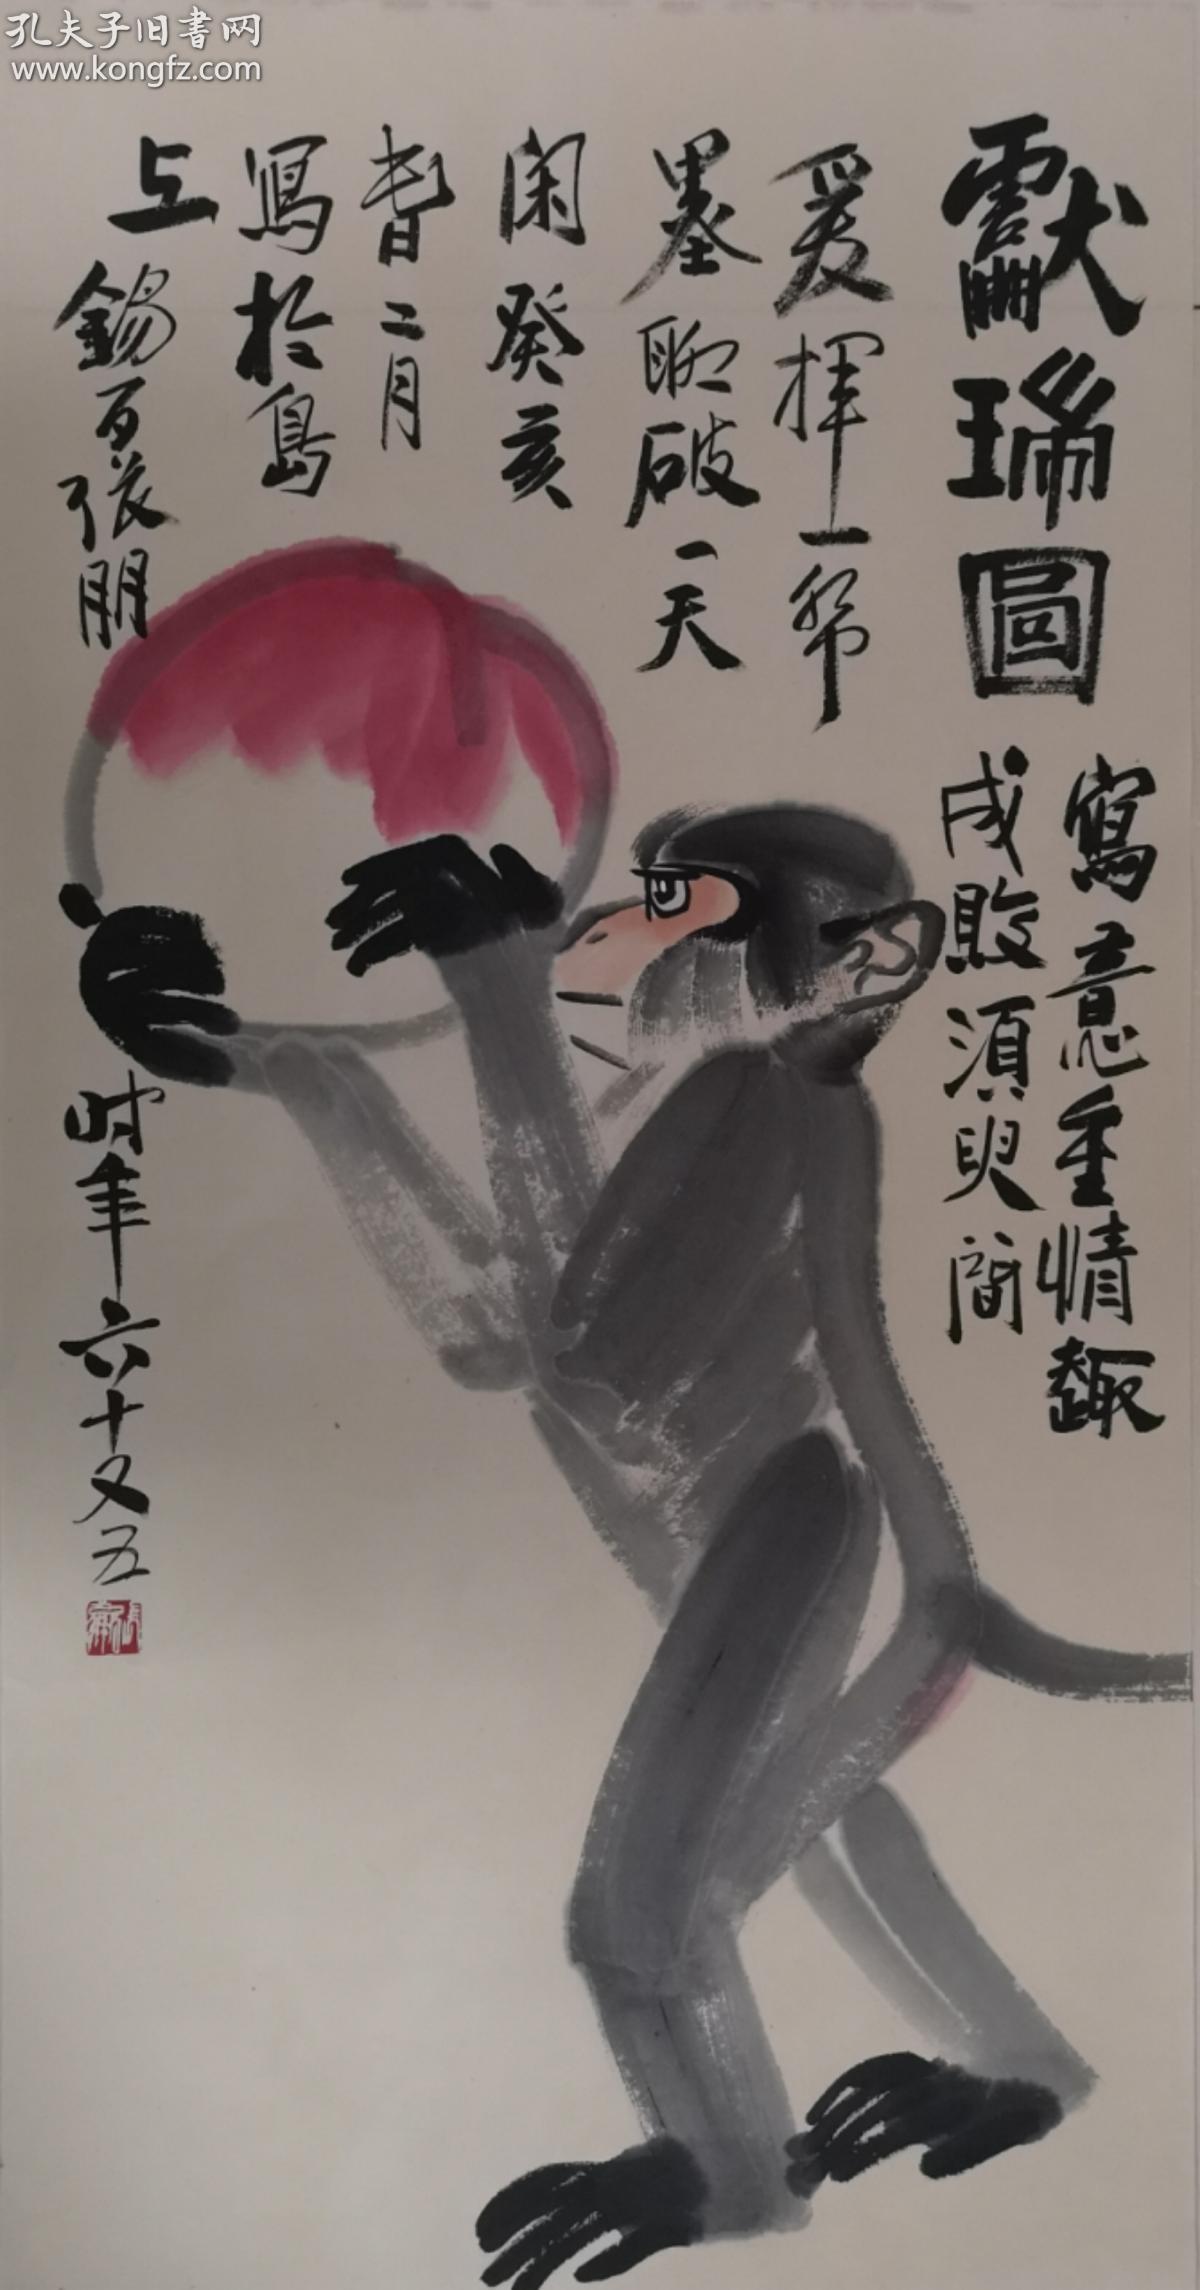 孔夫子旧書网
www.kongfz.com
獻瑞圖
寫意重情趣
成敗須臾間
爰揮一幣
墨聊破一天
闲癸亥
春二月
寫於島
上錫百張朋
時年六十又五